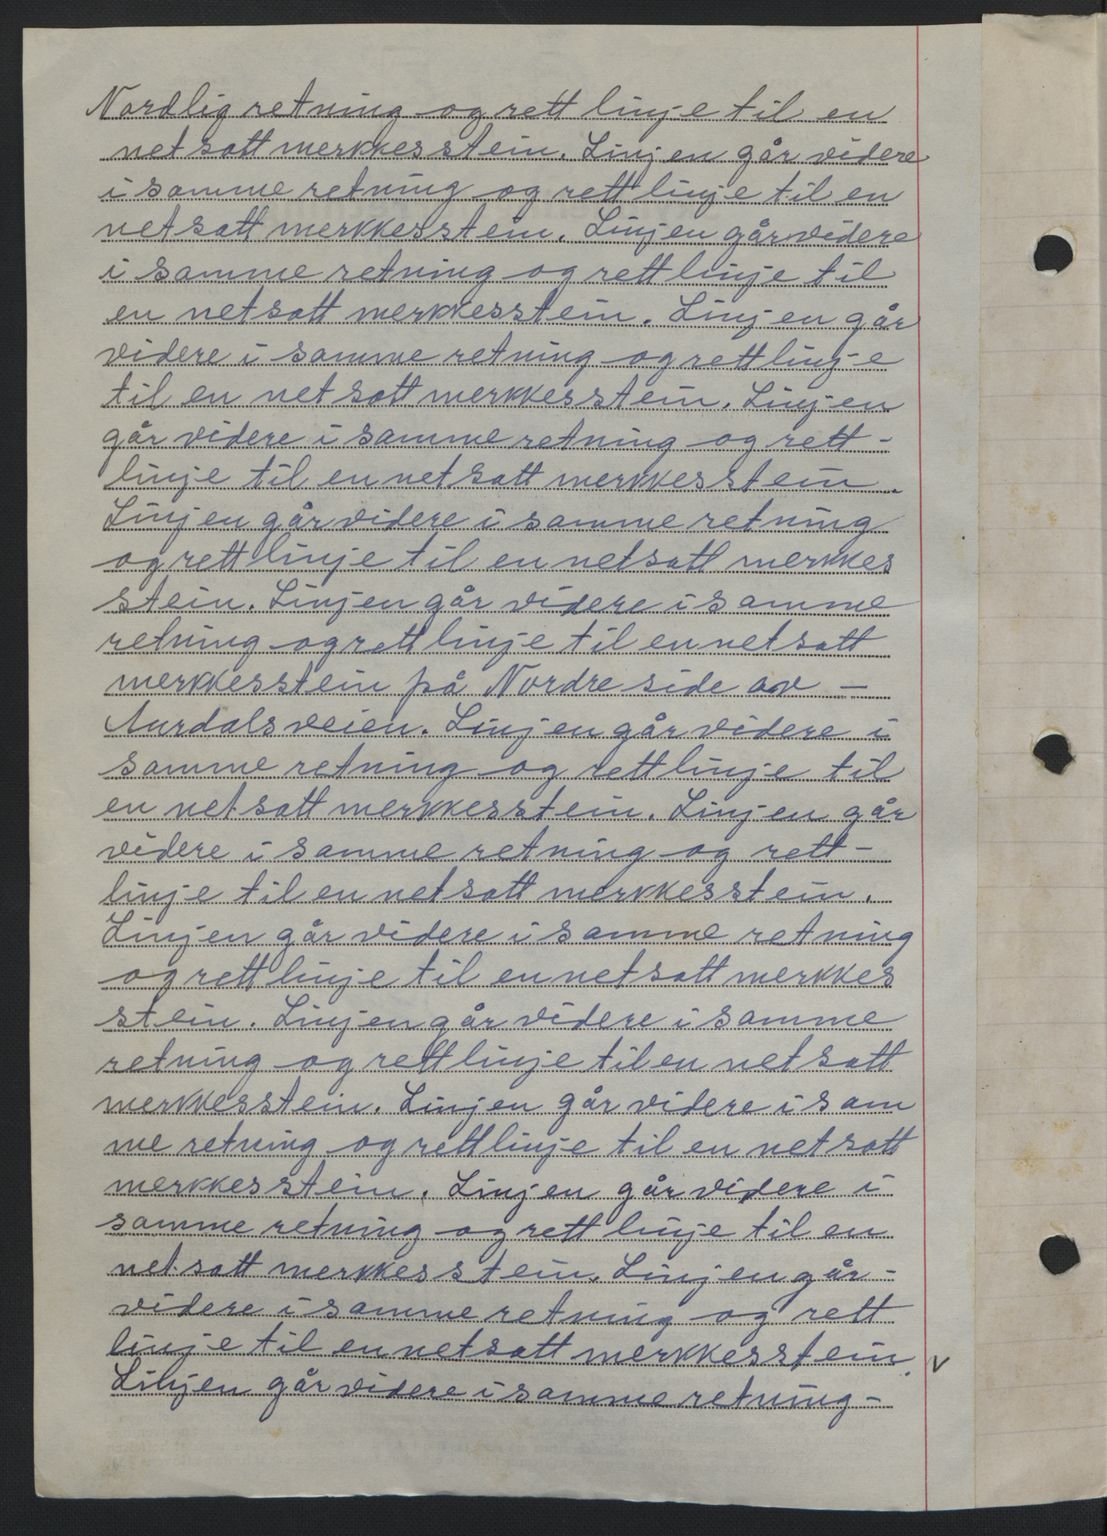 Nordlig retning og rett linje til en
netsatt merkkesstein. Linjen går videre
i samme retning og rett linje til en
netsatt merkkesstein. Linjen går videre
i samme retning og rett linje til
en netsatt merkkesstein. Linjen går
videre i samme retning og rett linje
til en netsatt merkkesstein. Linjen
går videre i samme retning og rett-
linje til en netsatt merkkesstein.
Linjen går videre i samme retning
og rett linje til en netsatt merkkes
stein. Linjen går videre i samme
retning og rett linje til en netsatt
merkkesstein på Nordre side av -
Aurdalsveien. Linjen går videre i
samme retning og rett linje til
en netsatt merkkesstein. Linjen går
videre i samme retning og rett-
linje til en netsatt merkkesstein.
Linjen går videre i samme retning
og rett linje til en netsatt merkkes
stein. Linjen går videre i samme
retning og rett linje til en netsatt
merkkesstein. Linjen går videre i sam
me retning og rett linje til en netsatt
merkkesstein. Linjen går videre i
samme retning og rett linje til en
netsatt merkkesstein. Linjen går -
videre i samme retning og rett
linje til en netsatt merkkesstein. v
Linjen går videre i samme retning -